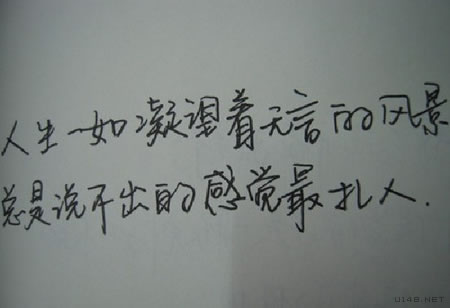 人生一如凝望着无言的风景
总是说不出的感觉最扎人.
U148.NET